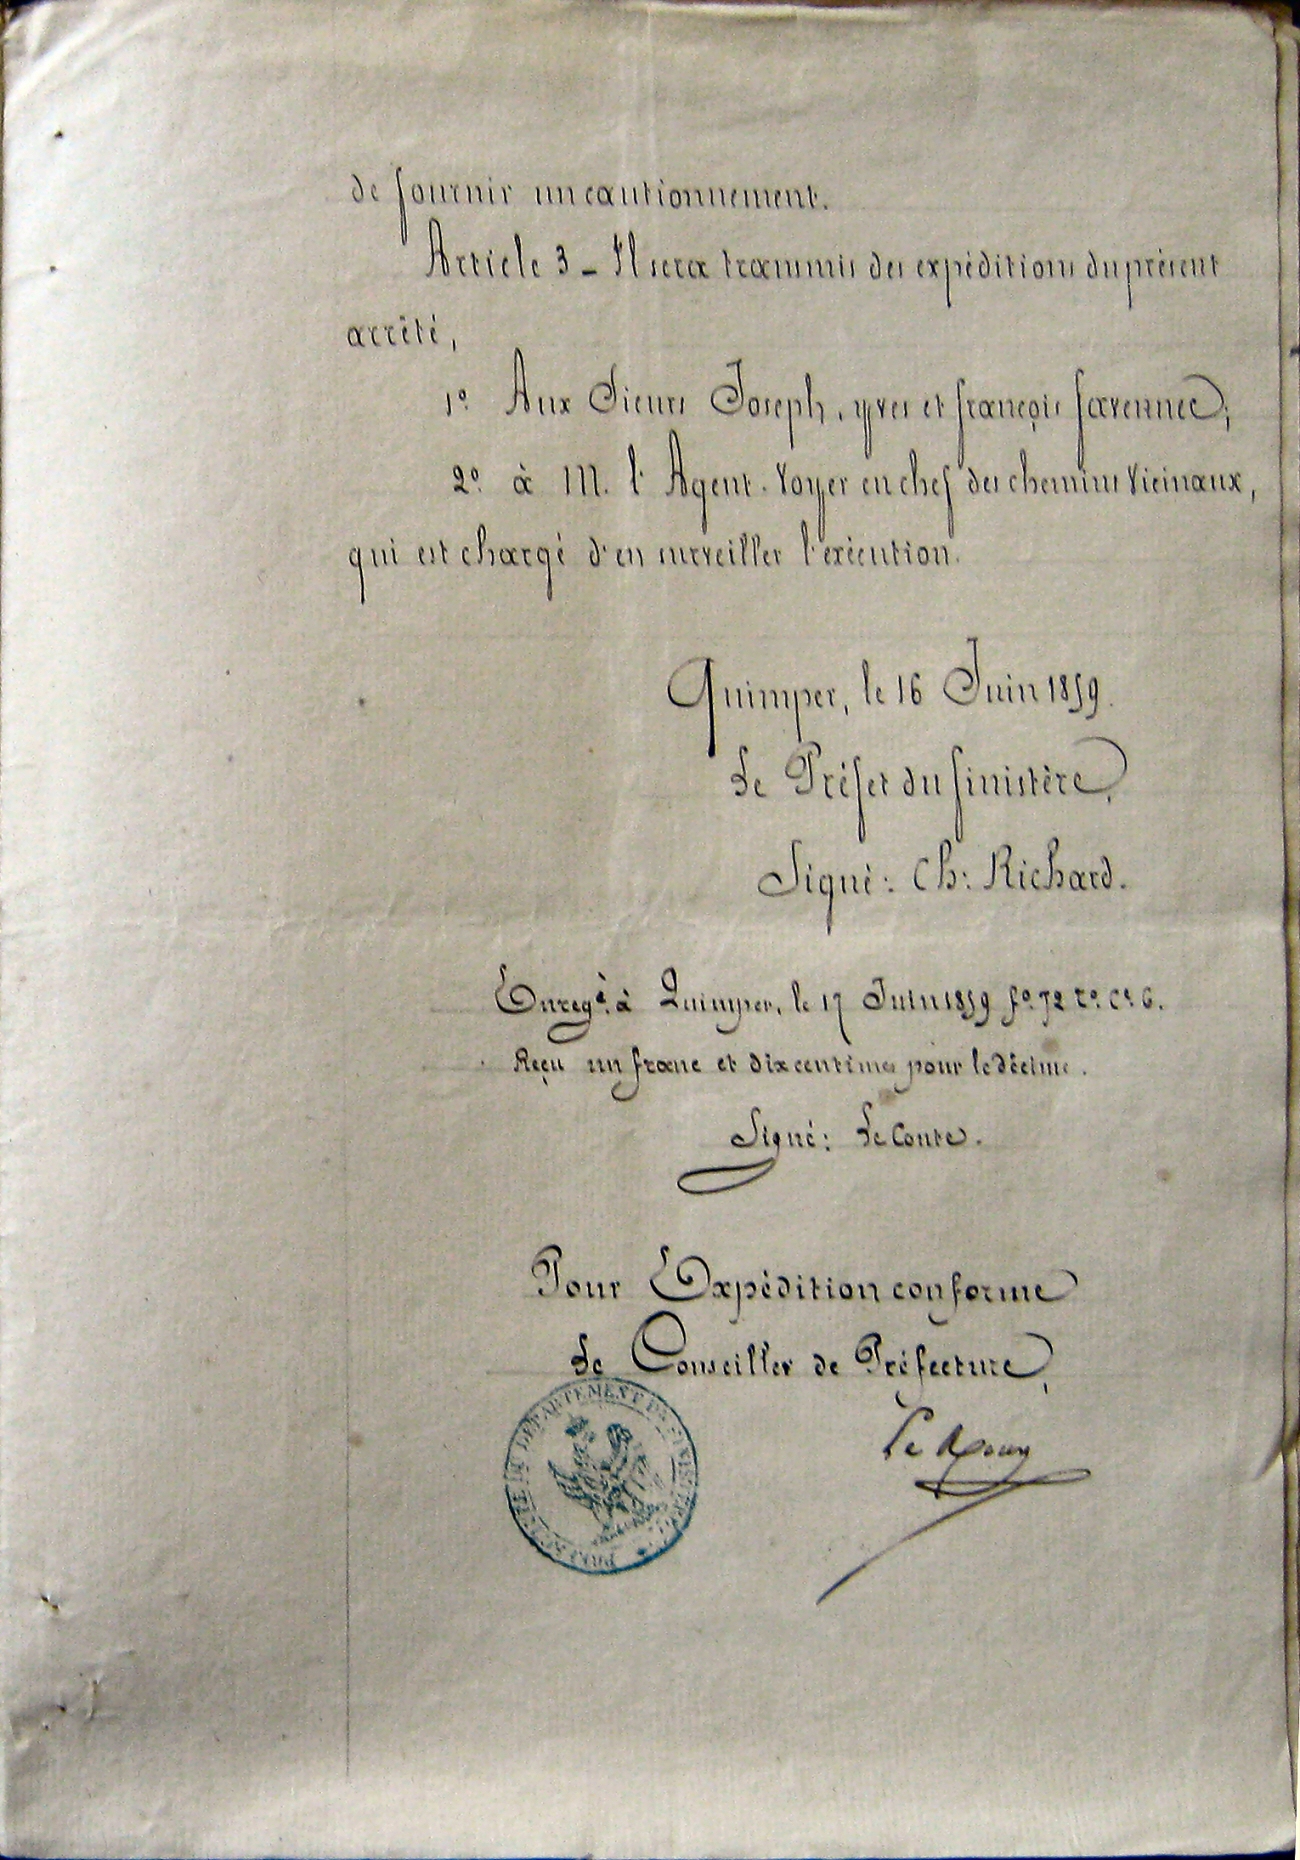 de fournir un cautionnement.
Article 3 _ Il sera transmis des expéditions du présent
arrêté,
1º. Aux Sieurs Joseph, yves et françois Savennec;
2º. à M. l'Agent-Voyer en chef des chemins Vicinaux,
qui est chargé d'en surveiller l'exécution.
Quimper, le 16 Juin 1859.
Le Préfet du finistère,
Signé: Ch: Richard.
Enregé. à Quimper, le 17 Juin 1859 fº. 72 rº. Ce. 6.
Reçu un franc et dix centimes pour le décime.
Signé: Le Conte.
Pour Expédition conforme
Le Conseiller de Préfecture,
Le
DÉPARTEMENT DU FINISTÈRE